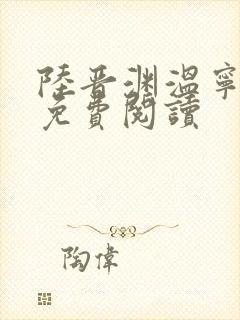 陸晉渊溫寧
免費閱讀
陶偉